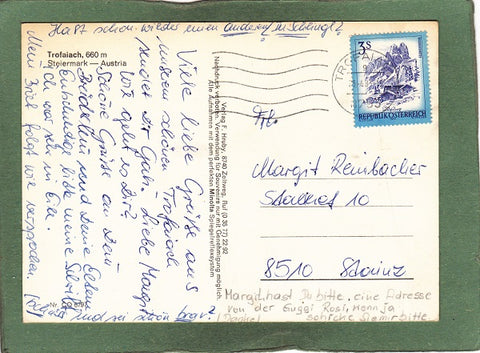 Hast schon wieder einen anderen im Schlingl?
Trofaiach, 660 m
Steiermark — Austria
Viele liebe Grüße aus
unserem schönen Trofaiach
sendet Dir Gabi. Liebe Margit
wie geht es Dir?
Schöne Grüße an Dein
Brüderlein und Deine Eltern
Entschuldige bitte meine Schrift
ich war in Eile.
Neuer Brief folgt wie versprochen.
und sei schön brav?
Verlag F. Hruby, 8740 Zeltweg, Ruf (0 35 77) 22 92
Nachdruck verboten. Verwendung für Souvenirs nur mit Genehmigung möglich.
Alle Aufnahmen mit dem perfekten Minolta Spiegelreflexsystem
Nr.
TROFAI
3 S
REPUBLIK ÖSTERREICH
Margit Reinbacher
Stallhof 10
8510 Stainz
Margit, hast Du bitte, eine Adresse
von der Guggi Rosi, wenn ja
(Danke) schicke sie mir bitte.